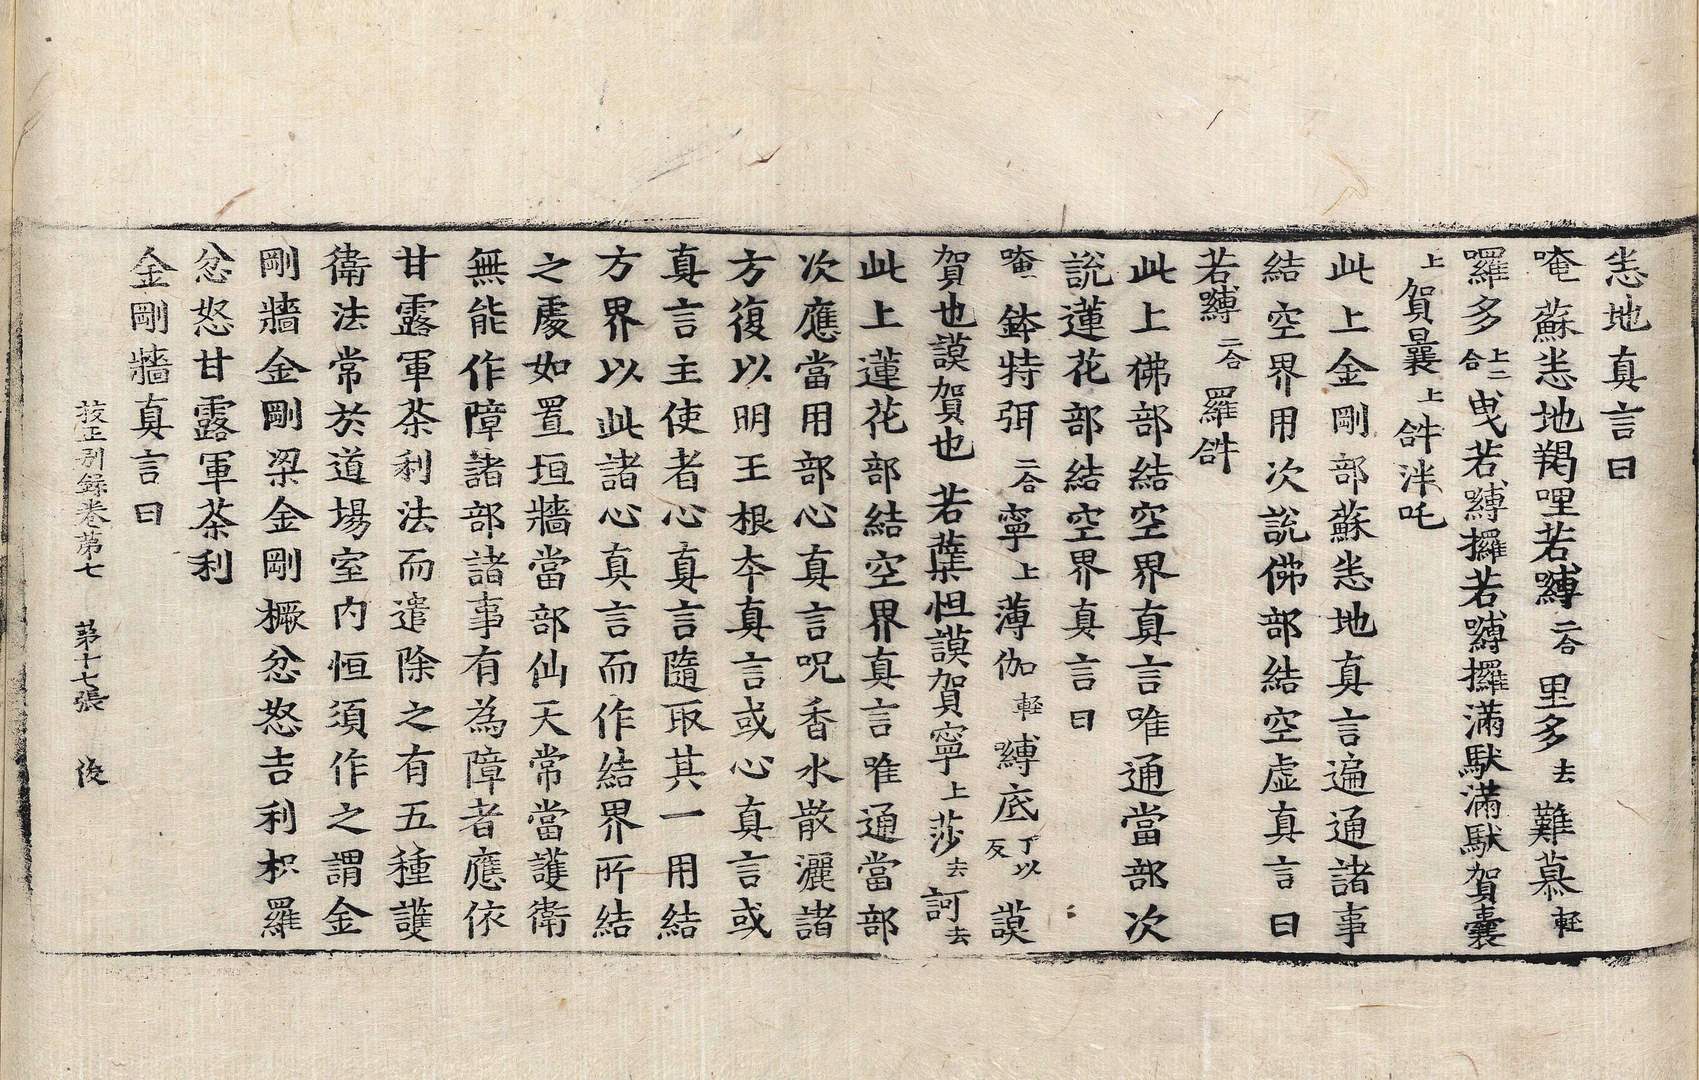 恙地真言曰
唵蘇恙地羯哩若嚩二合里多去難慕輕
囉多上二合曳若嚩攞若嚩攞滿馱滿馱賀囊
上賀曩上𤙖泮吒
此上金剛部蘇恙地真言遍通諸事
結空界用次說佛部結空虛真言曰
若嚩二合羅𤙖
此上佛部結空界真言唯通當部次
說蓮花部結空界真言曰
唵鉢特弭二合寧上薄伽輕嚩底丁以反謨
賀也謨賀也若蘖怛謨賀寧上莎去訶去
此上蓮花部結空界真言唯通當部
次應當用部心真言呪香水散灑諸
方復以明王根本真言或心真言或
真言主使者心真言隨取其一用結
方界以此諸心真言而作結界所結
之處如置垣牆當部仙天常當護衛
無能作障諸部諸事有為障者應依
甘露軍荼利法而遣除之有五種護
衛法常於道場室內恒須作之謂金
剛牆金剛梁金剛橛忿怒吉利枳羅
忿怒甘露軍荼利
金剛牆真言曰
挍正別錄卷第七 第十七張 後